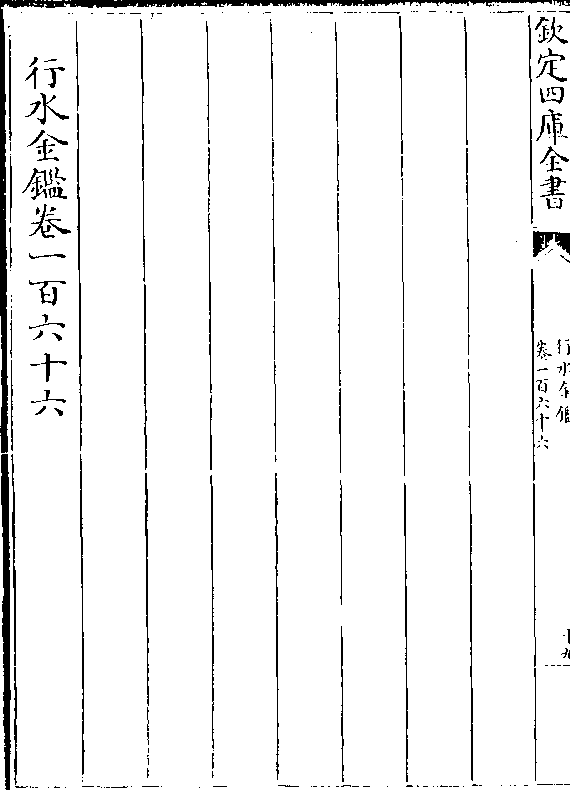 欽定四庫全書
行水金鑑
卷一百六十六
十九
行水金鑑卷一百六十六